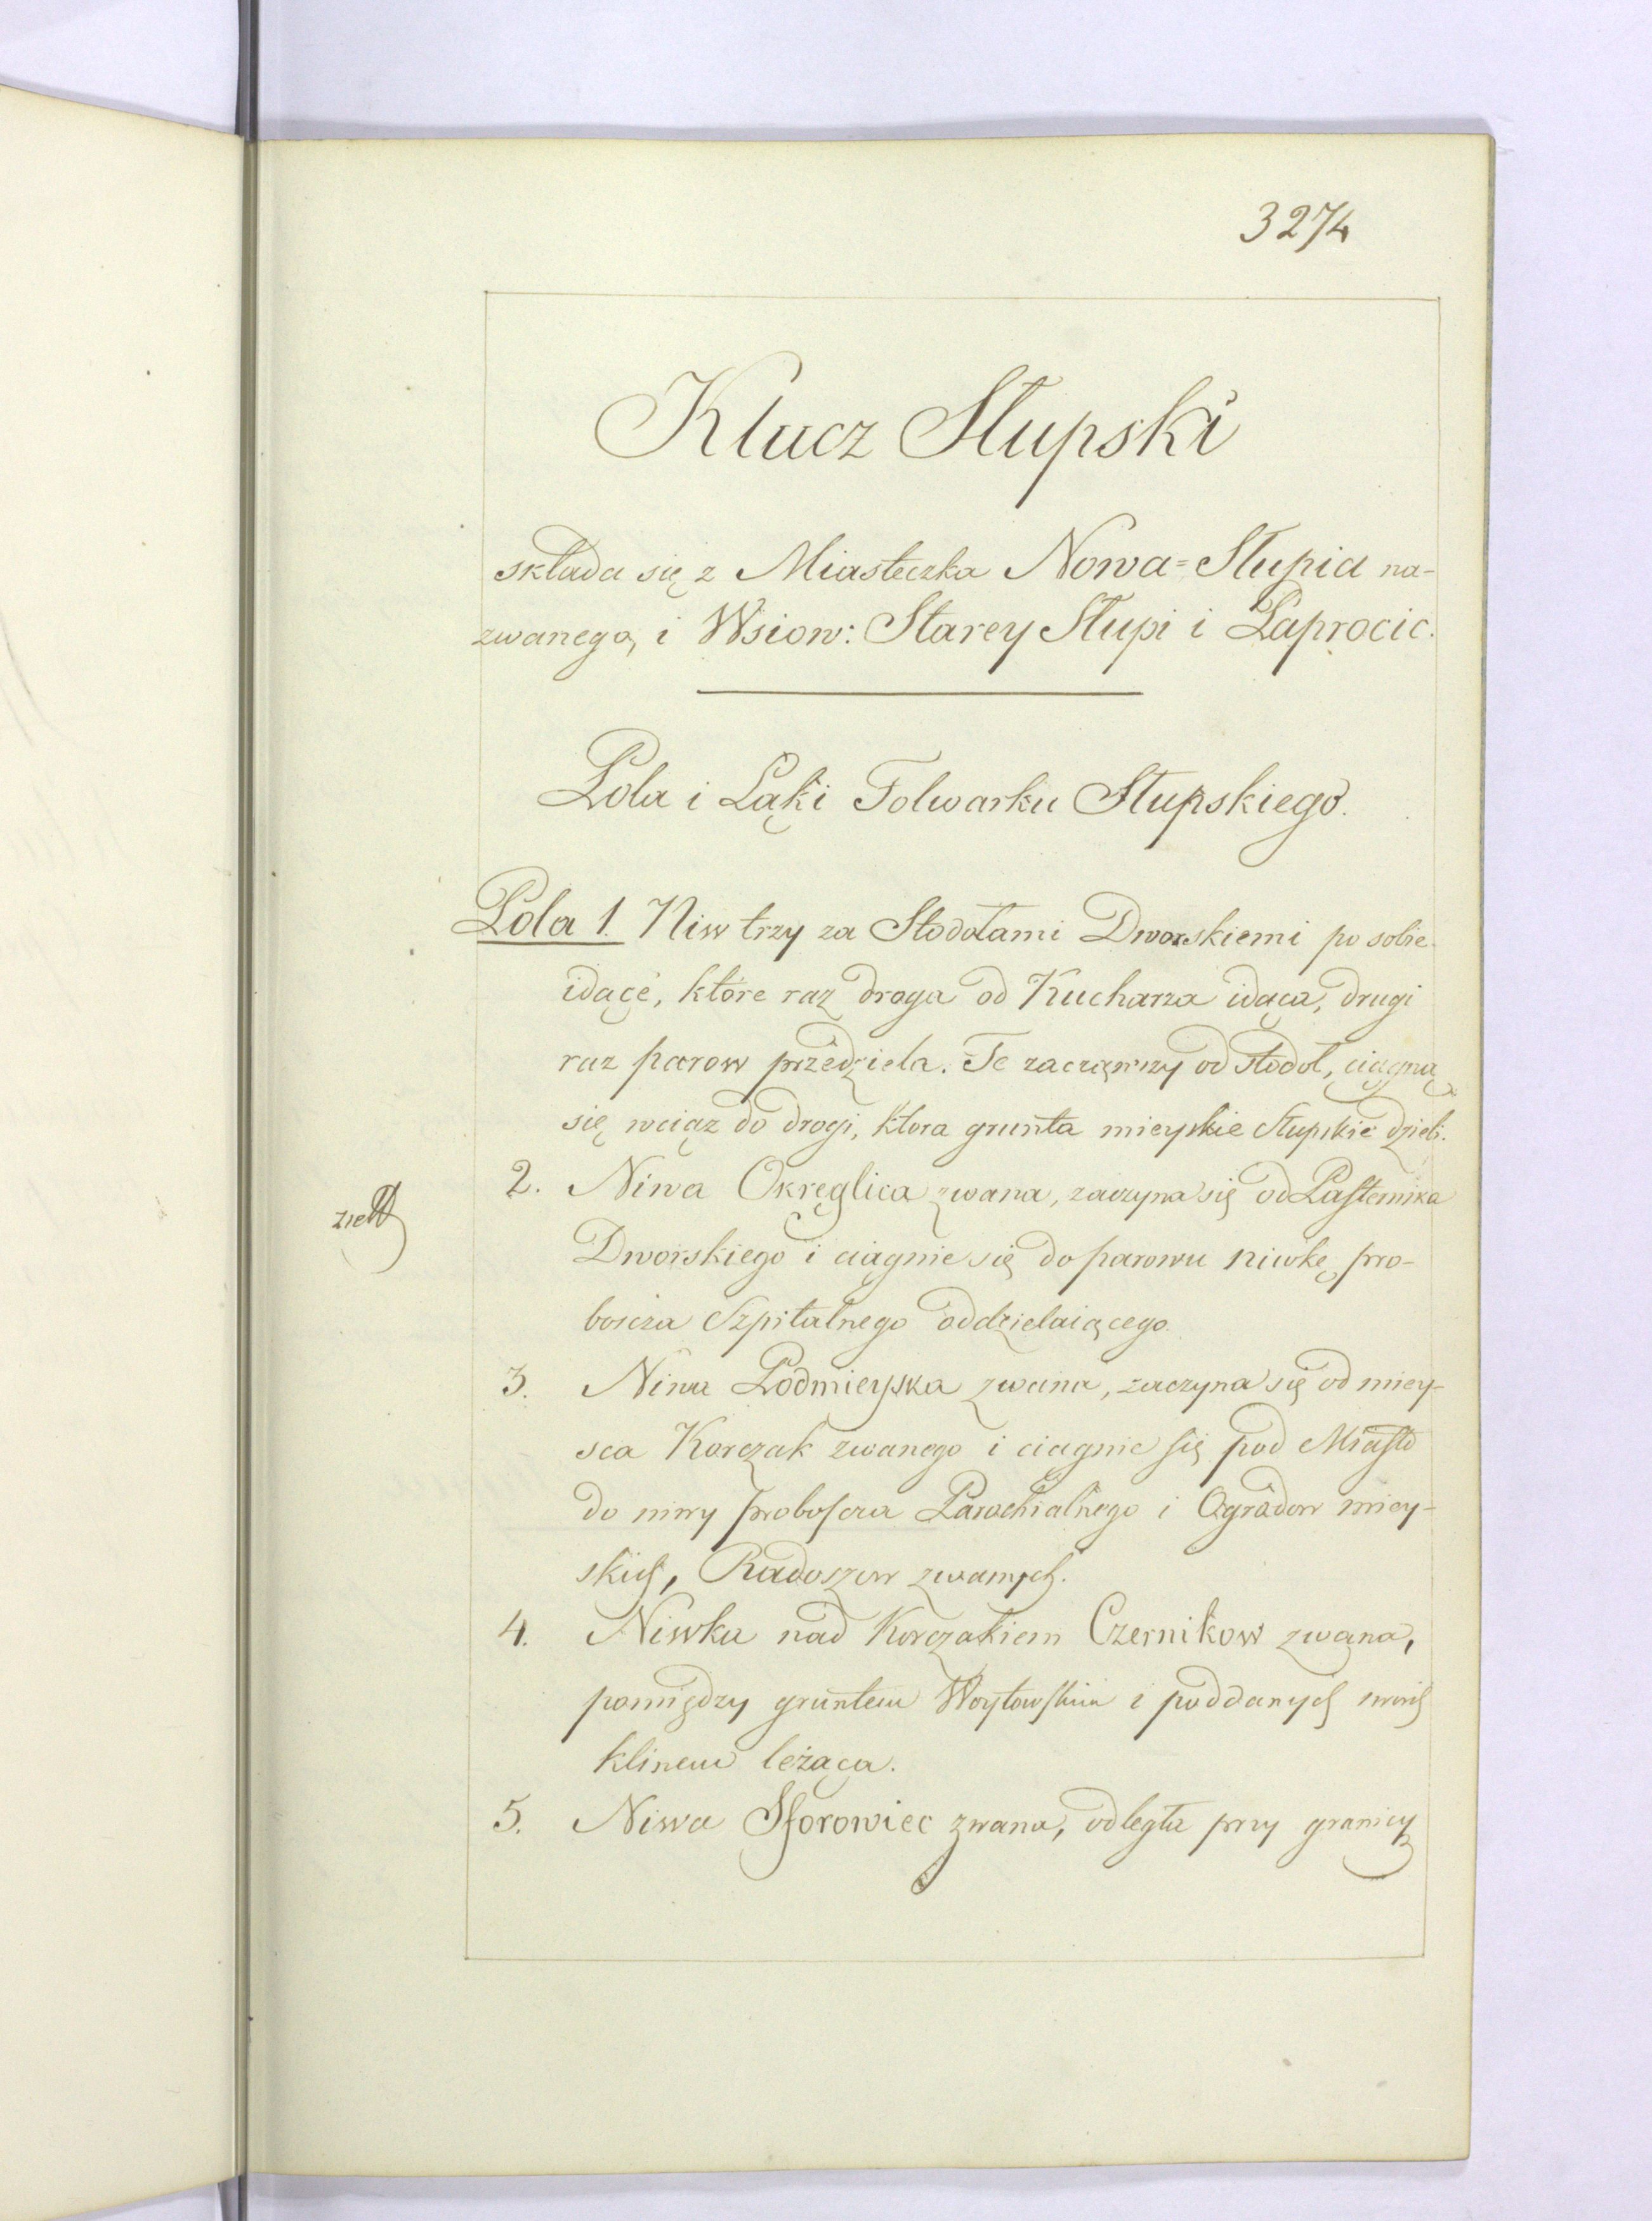 3274
Klucz Słupski
składa się z Miasteczka Nowa=Słupia na-
zwanego, i Wsiow: Starey Słupi i Paprocic.
Pola i Łąki Folwarku Słupskiego.
Pola 1. Niw trzy za Stodołami Dworskiemi po sobie
idące, które raz droga od Kucharza idąca, drugi
raz parow przedziela. Te zacząwszy od stodoł, ciągną
się wciąz do drogi, ktora grunta mieyskie Słupskie dzieli.
2. Niwa Okręglica zwana, zaczyna się od Pasternika
Dworskiego i ciągnie się do parowu niwkę pro-
boscza Szpitalnego oddzielaiącego.
3. Niwa Podmieyska zwana, zaczyna się od miey-
sca Korczak zwanego i ciągnie się pod Miasto
do niwy proboscza Parochialnego i Ogradow miey-
skich, Radoszow zwanych.
4. Niwka nad Korczakiem Czernikow zwana,
pomiędzy gruntem Woytowskim i poddanych
klinem leżąca.
5. Niwa Sforowiec zwana, odległa przy granicy